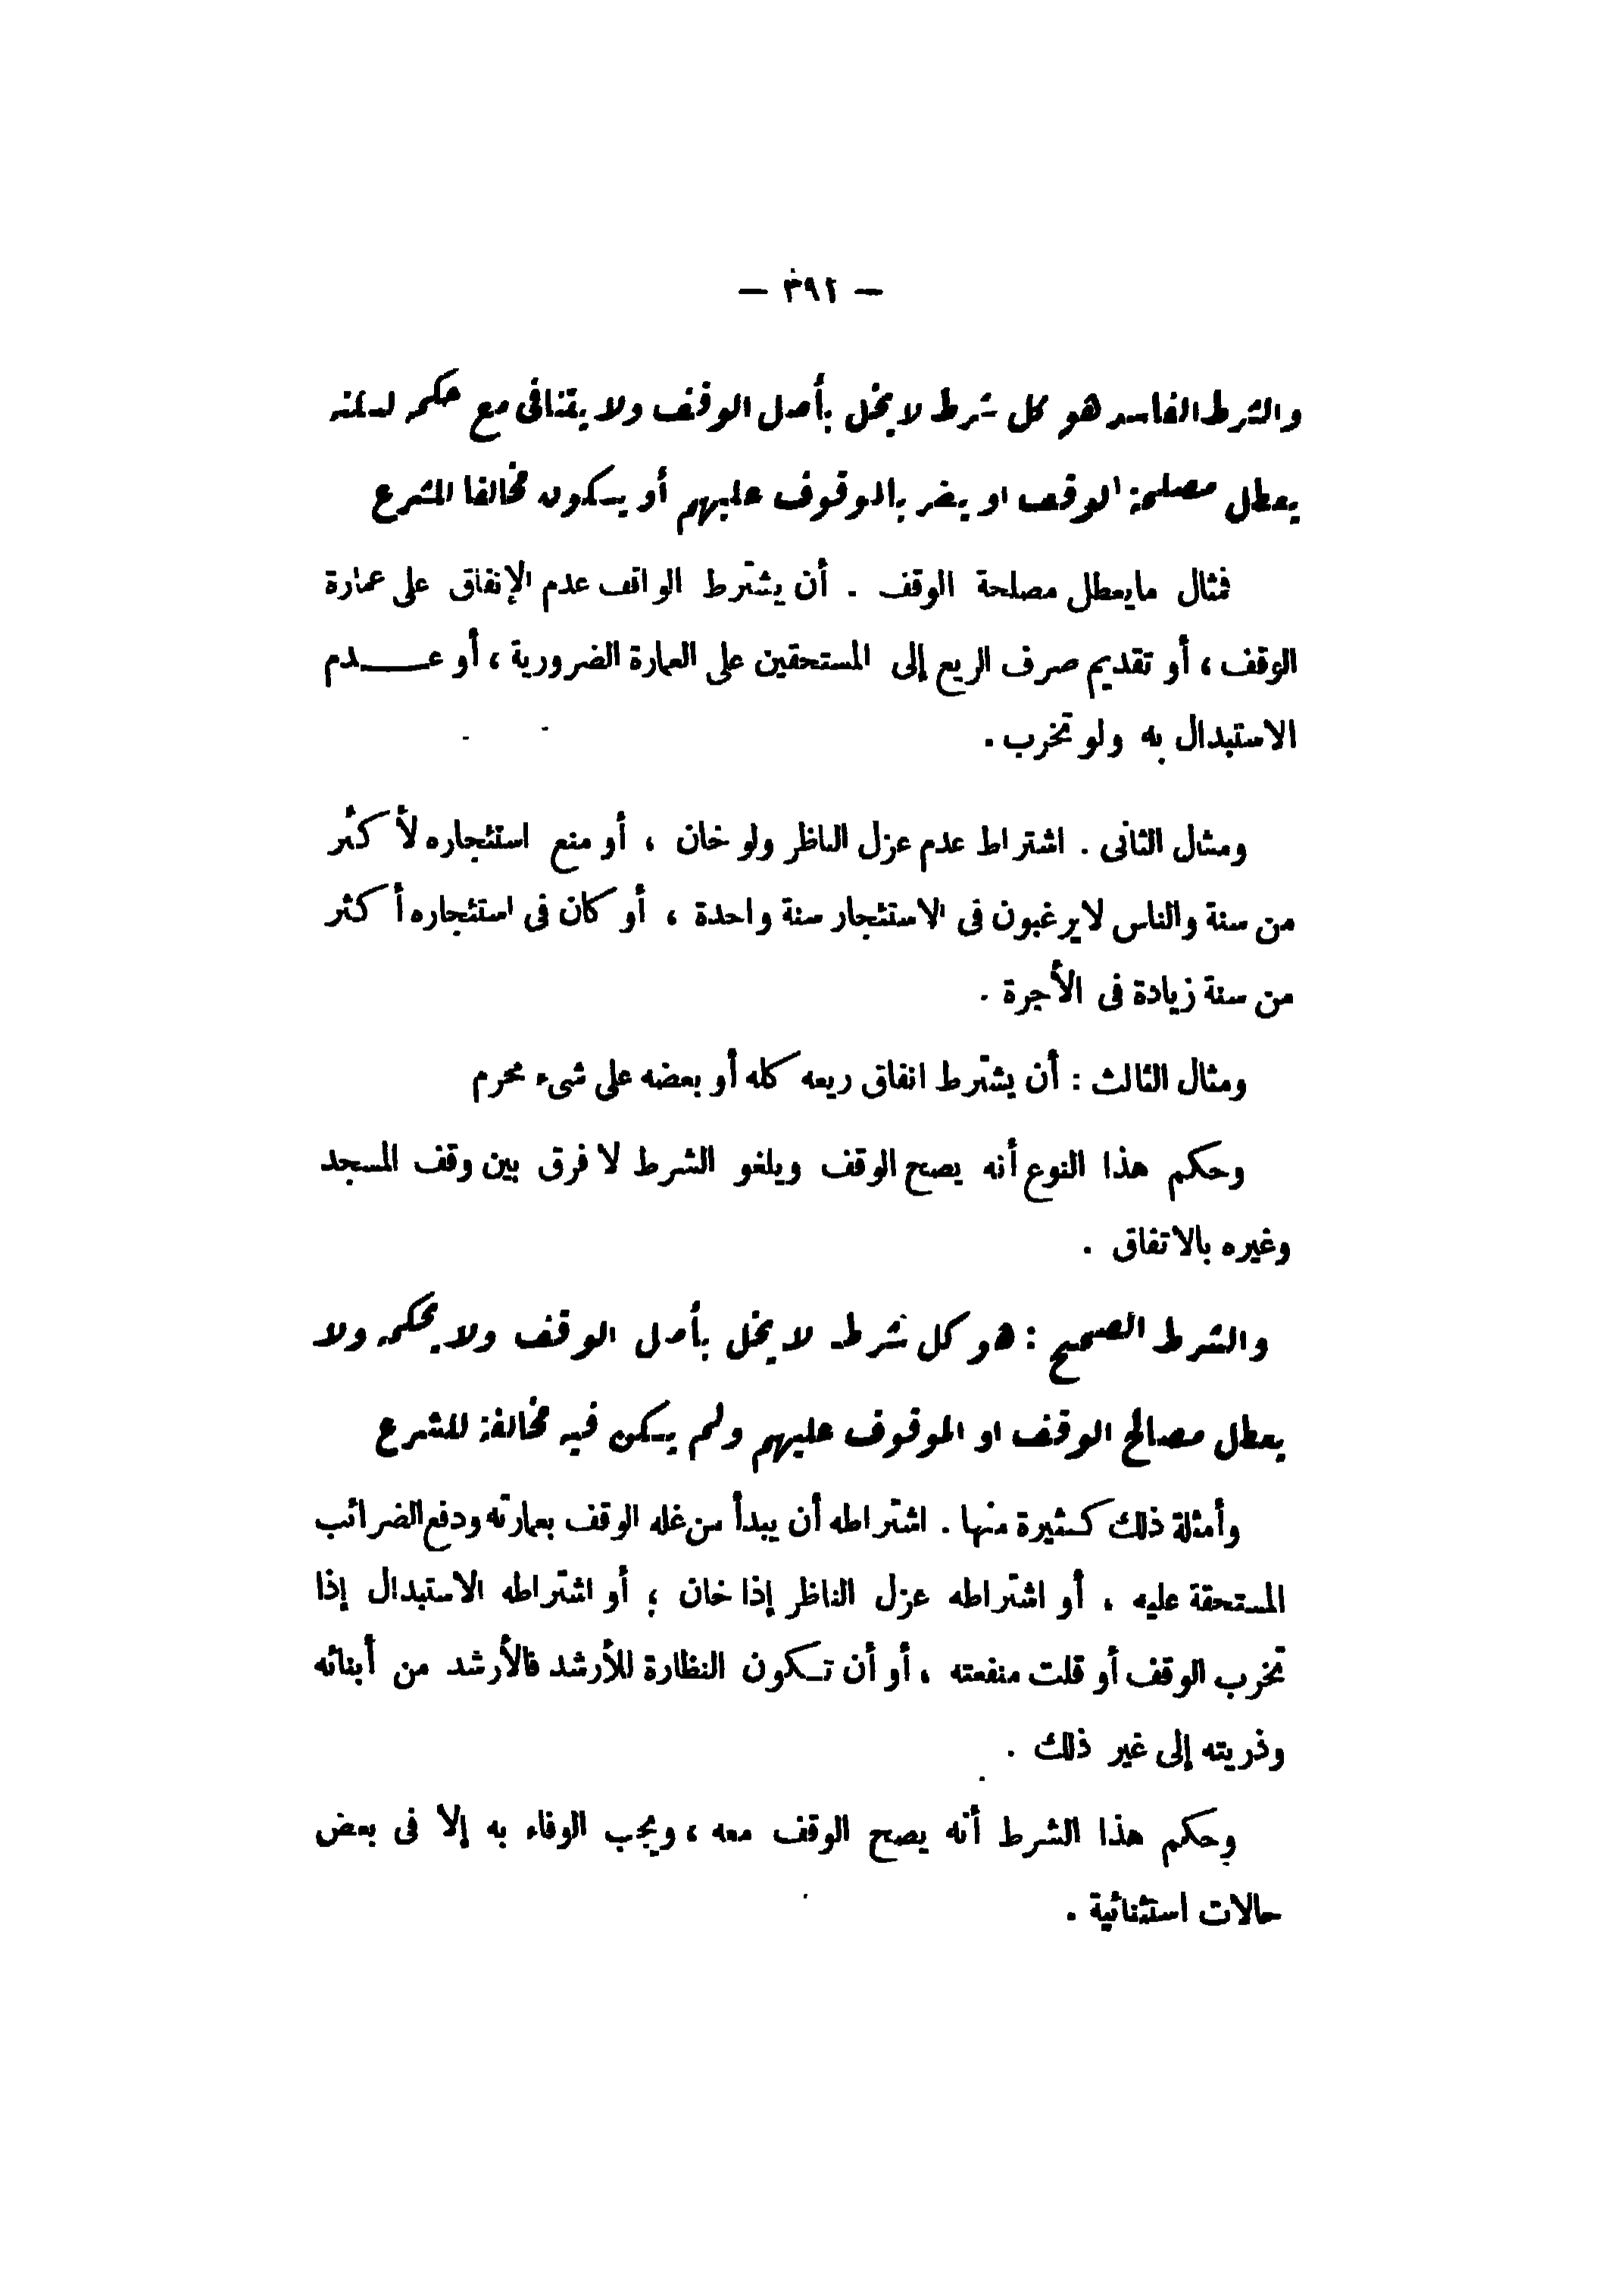 — ٣٩٢ —
والشرط الفاسد هو كل شرط لا يخل بأصل الوقف ولا يتنافى مع حكمه لكنه
يعطل مصلحة الوقف او يضر بالموقوف عليهم أو يكون مخالفا للشرع
فمثال ما يعطل مصلحة الوقف . أن يشترط الواقف عدم الإنفاق على عمارة
الوقف ، أو تقديم صرف الريع إلى المستحقين على العمارة الضرورية ، أو عـــدم
الاستبدال به ولو تخرب .
ومثال الثانى . اشتراط عدم عزل الناظر ولو خان ، أو منع استئجاره لأكثر
من سنة والناس لا يرغبون فى الاستئجار سنة واحدة ، أو كان فى استئجاره أكثر
من سنة زيادة فى الأجرة .
ومثال الثالث : أن يشترط انفاق ريعه كله أو بعضه على شىء محرم
وحكم هذا النوع أنه يصح الوقف ويلغو الشرط لا فرق بين وقف المسجد
وغيره بالاتفاق .
والشرط الصحيح : هو كل شرط لا يخل بأصل الوقف ولا بحكمه ولا
يعطل مصالح الوقف او الموقوف عليهم ولم يكن فيه مخالفة للشرع
وأمثلة ذلك كثيرة منها . اشتراطه أن يبدأ من غله الوقف بعمارته ودفع الضرائب
المستحقة عليه ، أو اشتراطه عزل الناظر إذا خان ؛ أو اشتراطه الاستبدال إذا
تخرب الوقف أو قلت منفعته ، أو أن تكون النظارة للأرشد فالأرشد من أبنائه
وذريته إلى غير ذلك .
وحكم هذا الشرط أنه يصح الوقف معه ، ويجب الوفاء به إلا فى بعض
حالات استثنائية .